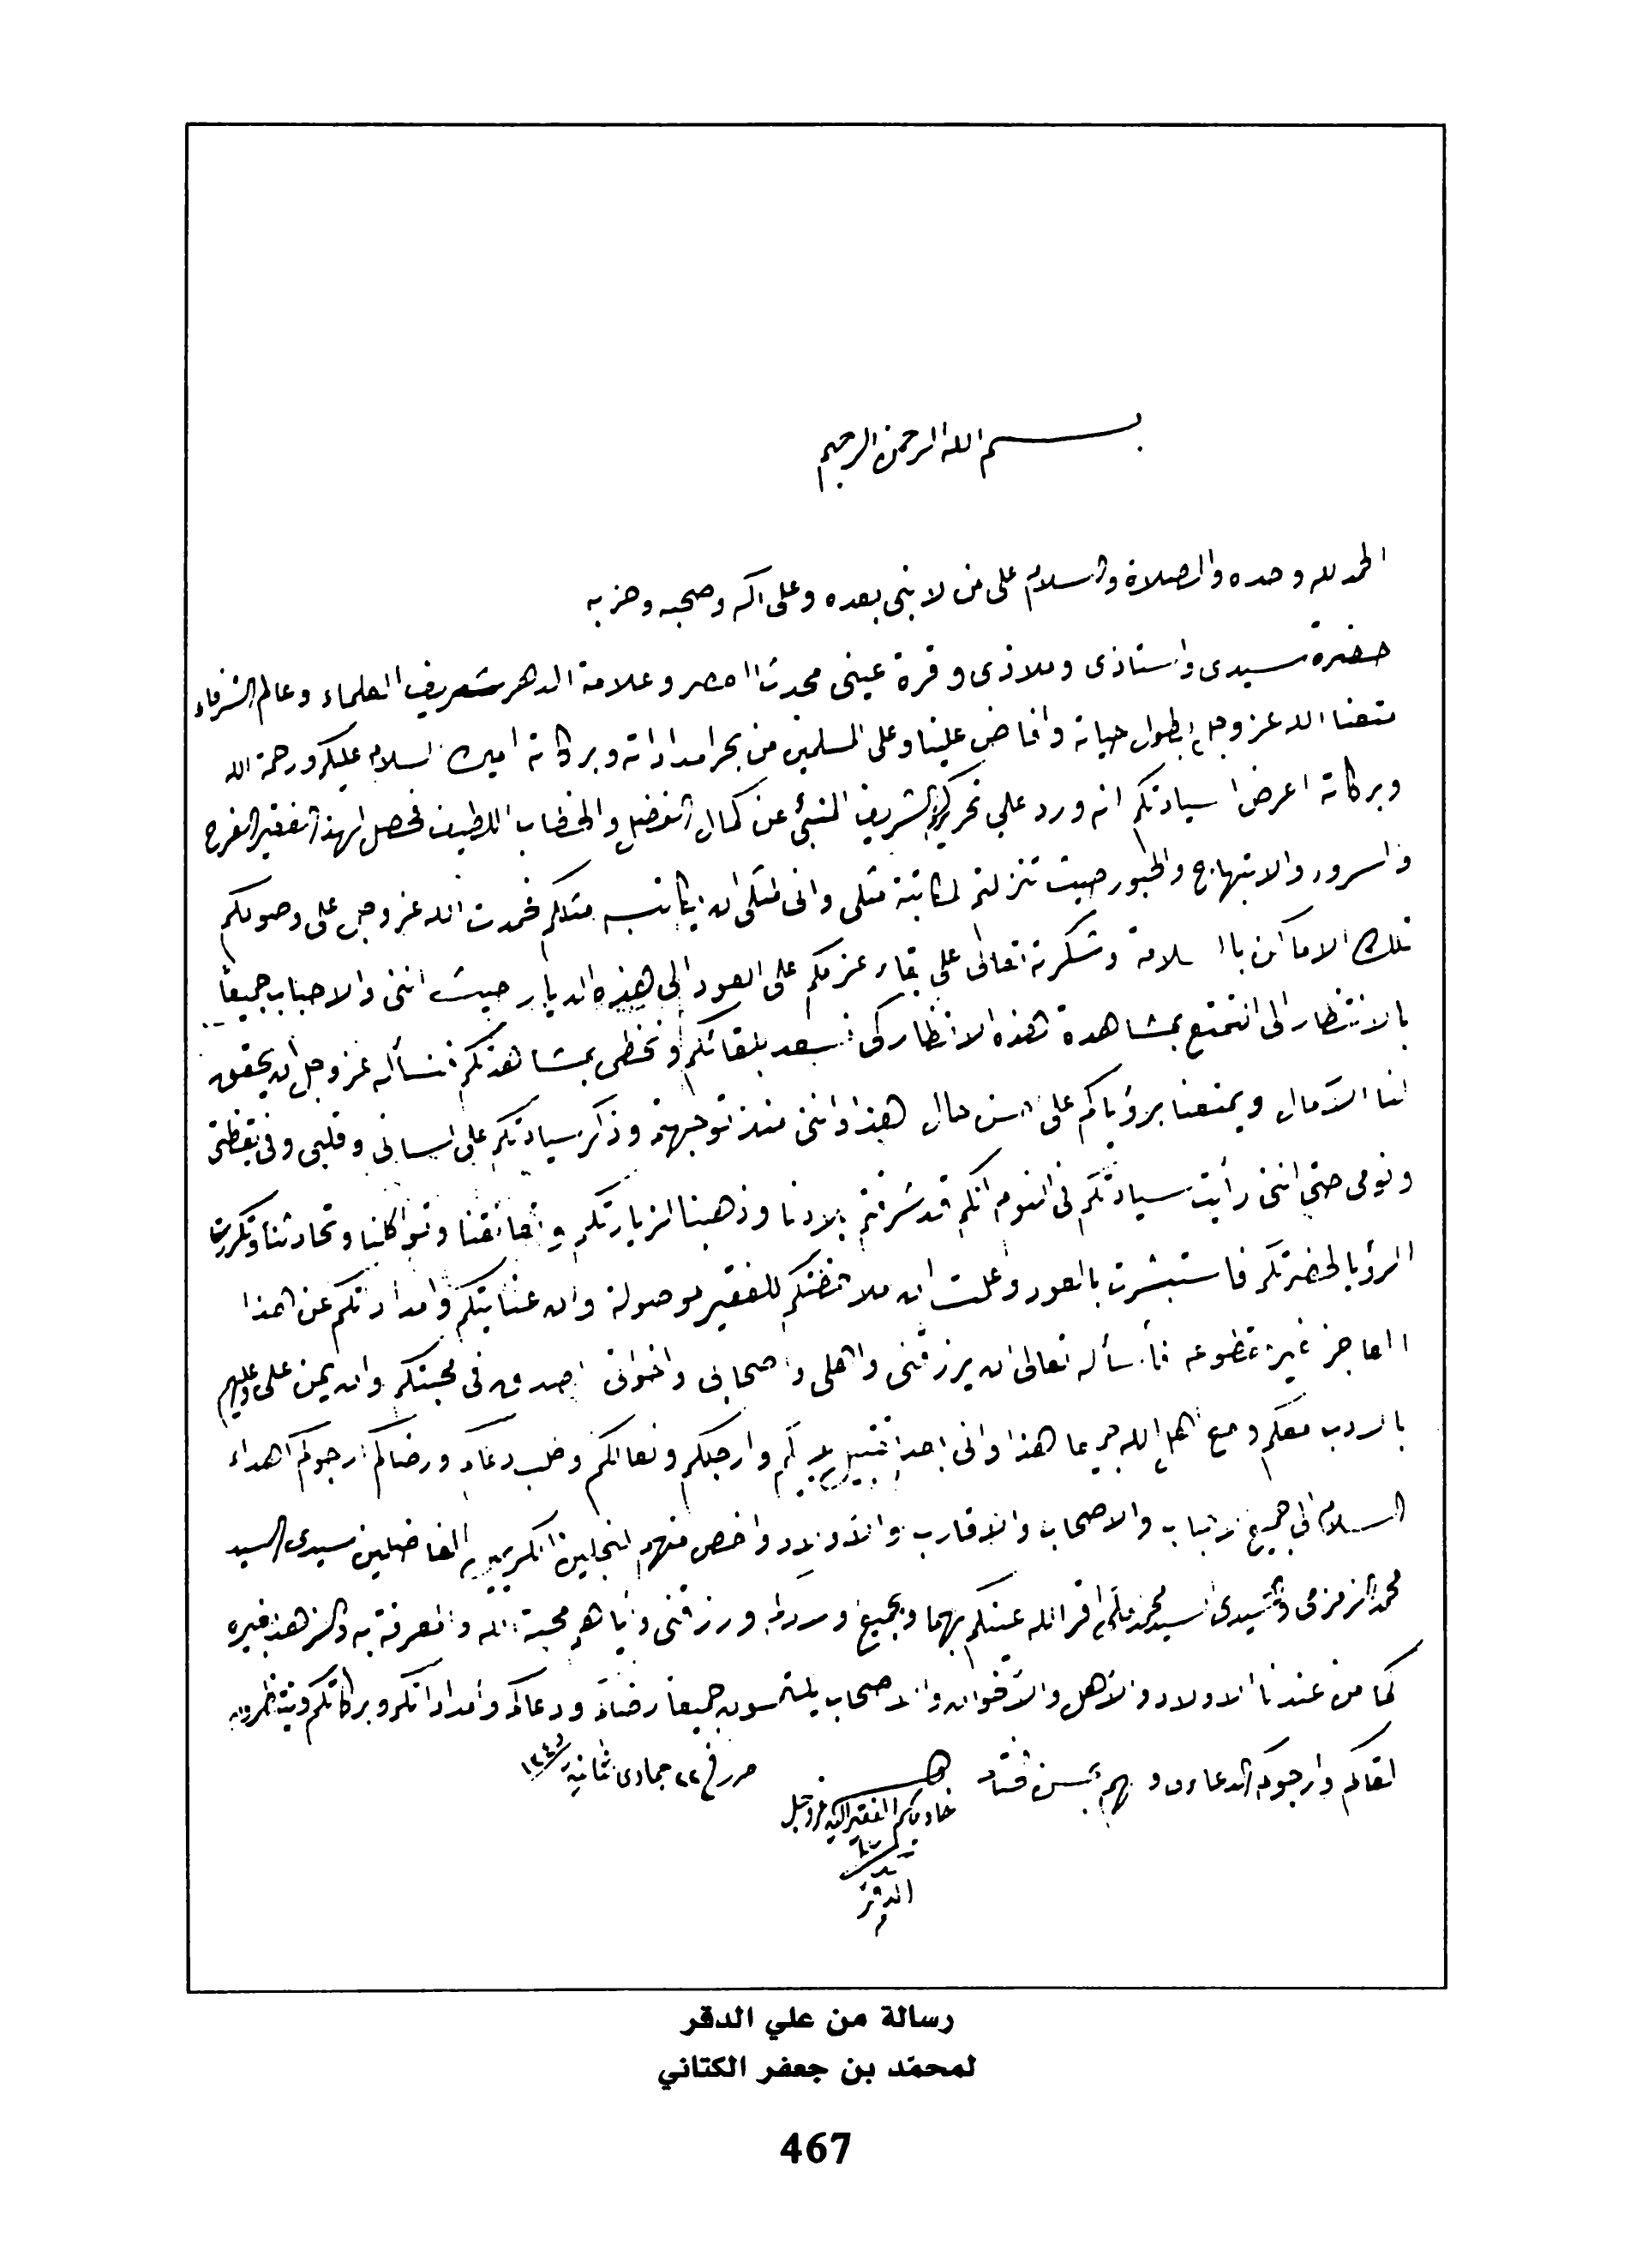 بسم الله الرحمن الرحيم
الحمد لله وحده والصلاة والسلام على من لا نبي بعده وعلى آله وصحبه وحزبه
حضرة سيدي واستاذي وملاذي وقرة عيني محدث العصر وعلامة الدهر شريف العلماء وعالم الشرفاء
متعنا الله عز وجل بطول حياته وافاض علينا وعلى المسلمين من بحر امداداته وبركاته امين السلام عليكم ورحمة الله
وبركاته اعرض لسيادتكم انه ورد علي تحريركم الشريف المنبئ عن كمال الفضل والخطاب اللطيف فحصل لهذا الفقير الفرح
والسرور والابتهاج والحبور حيث تنزلتم لمكاتبة مثلي واني لمثلي ان يكاتبه مثلكم فحمدت الله عز وجل على وصولكم
تلك الاماكن بالسلامة وشكرته تعالى على بقاء عزمكم على العود الى هذه الديار حيث انني والاحباب جميعاً
بالانتظار الى التمتع بمشاهدة هذه الانظار كي نسعد بلقائكم ونحظى بمشاهدتكم فنسأله عز وجل أن يحقق
لنا الآمال ويمتعنا برؤياكم على احسن حال هذا وانني منذ توجهتم وذكر سيادتكم على لساني وقلبي وفي يقظتي
ونومي حتى انني رأيت سيادتكم في النوم انكم قد شرفتم بلادنا وذهبنا لزيارتكم وتعانقنا وتواكلنا وتحادثنا وتكررت
الرؤيا لحضرتكم فاستبشرت بالعود وعلمت ان ملاحظتكم للفقير موصولة وان عنايتكم وامداداتكم عن هذا
العاجز غير مقطوعة فأسأله تعالى ان يرزقني واهلي واصحابي واخواني الصدق في محبتكم وان يمن علي وعليهم
بالادب معكم ومع اهل الله جميعا هذا واني اهدي تقبيل يديكم وارجلكم ونعالكم وطلب دعاكم ورضاكم ارجوكم اهداء
السلام الى جميع الاحباب والاصحاب والاقارب والاولاد واخص منهم النجلين الكريمين الفاضلين سيدي السيد
محمد الزمزمي وسيدي السيد محمد المكي اقر الله عينكم بهما وبجميع ورزقني واياهم محبة الله والمعرفة به
كما من عندنا الاولاد والاهل والاخوان والاصحاب يلتمسون جميعا رضاكم ودعاكم وامداداتكم وبركاتكم وينتظرون
لقاكم وارجوكم الدعاء
حرر في ٢٢ جمادى الثانية سنة ١٣٤٥
خادمكم الفقير اليه عز وجل
الدقر
رسالة من علي الدقر
لمحمّد بن جعفر الكتاني
467